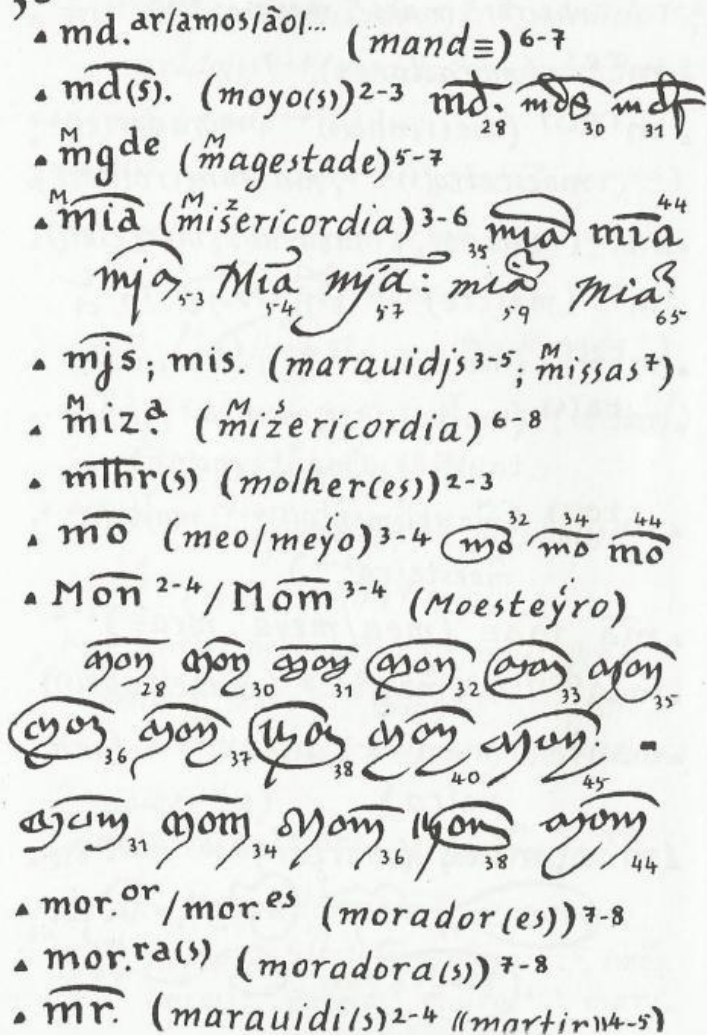 ▴ md.ar/amos/ãol... (mand≡)6-7
▴ m̅d̅(s). (moyo(s))2-3 md. 28 mds 30 mds 31
▴ Mmgde (Mmagestade)5-7
▴ Mm̅i̅a̅ (Mmiszericordia)3-6 mia 35 mia 44
mja 53 Mia 54 mja: 57 mia 59 mia 65
▴ m̅j̅s; mis. (marauidjs3-5; Mmissas7)
▴ Mmiz.a (Mmizsericordia)6-8
▴ m̅l̅h̅r̅(s) (molher(es))2-3
▴ m̅o̅ (meo/meyio)3-4 mo 32 mo 34 mo 44
▴ Mo̅n̅ 2-4/Mo̅m̅ 3-4 (Moesteyiro)
mon 28 mon 30 mon 31 mon 32 mon 33 mon 35
mon 36 mon 37 mon 38 mon 40 mon 45 -
mom 31 mom 34 mom 36 mom 38 mom 44
▴ mor.or/mor.es (morador(es))7-8
▴ mor.ra(s) (moradora(s))7-8
▴ m̅r̅. (marauidi(s)2-4 ((martir))4-5)